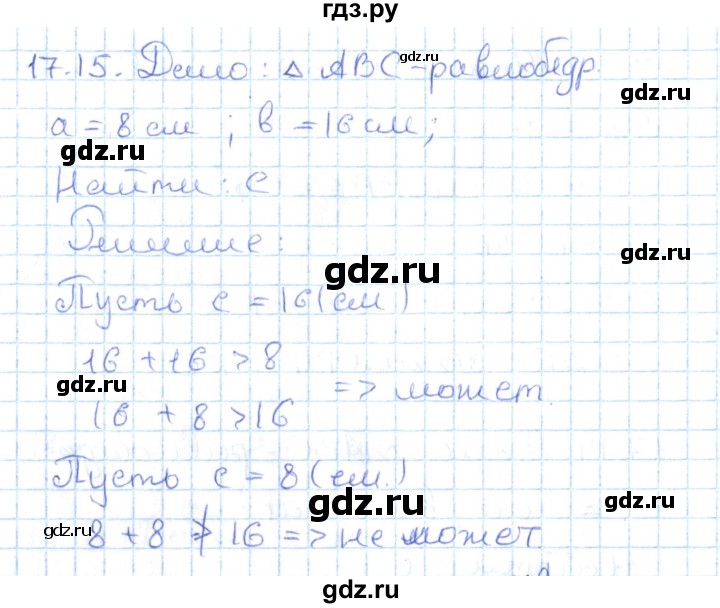 гдз.ру
17.15. Дано: △ ABC-равнобедр.
gdz.ru
a = 8 см ; в = 16 см;
gdz.ru
gdz.ru
Найти: c
Решение:
gdz.ru
gdz.ru
Пусть c = 16 (см)
16 + 16 > 8
gdz.ru
gdz.ru
=> может.
16 + 8 > 16
Пусть c = 8 (см.)
gdz.ru
gdz.ru
8 + 8 ≯ 16 => не может
gdz.ru
gdz.ru